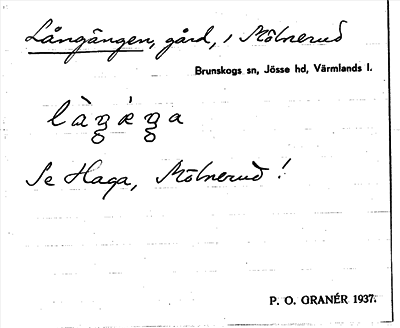 Långängen, gård, i Mölnerud
Brunskogs sn, Jösse hd, Värmlands l.
Se Haga, Mölnerud!
P. O. GRANÉR 1937.